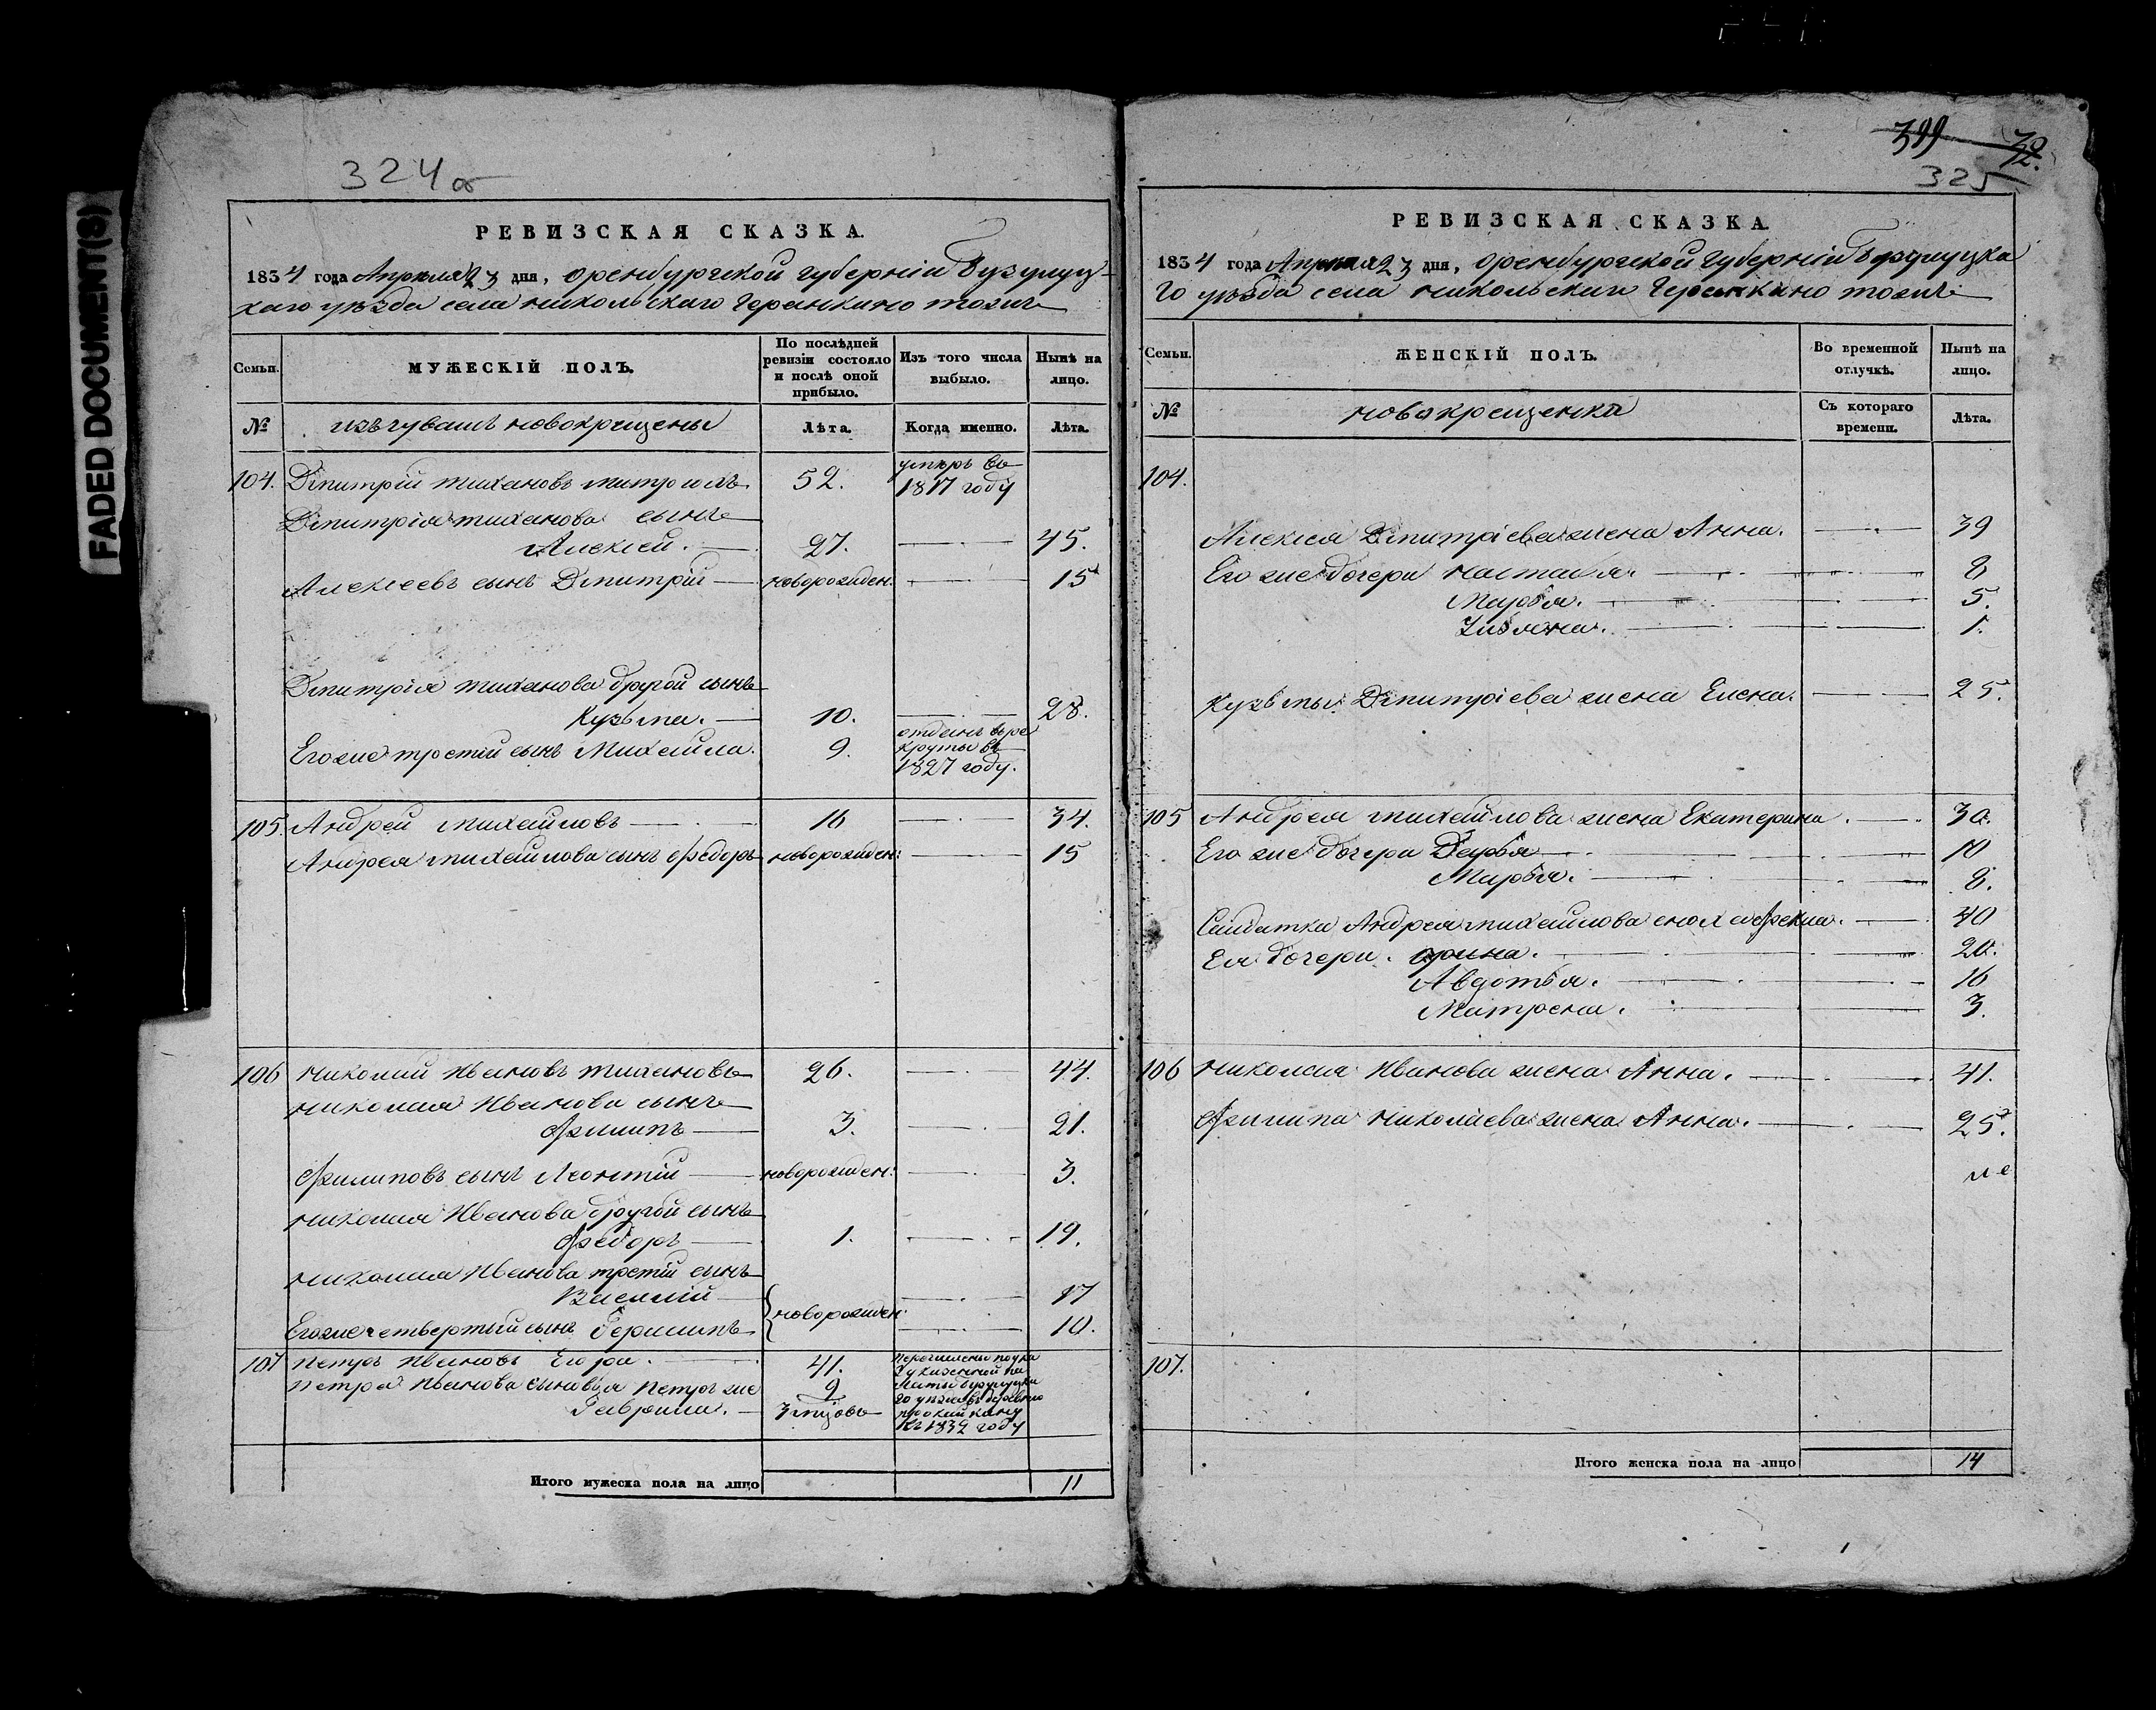 FADED DOCUMENT(S)
324об
РЕВИЗСКАЯ СКАЗКА.
1834 года Апреля 23 дня, Оренбургской губернiи Бузулуц-
каго уѣзда села Никольскаго Геранкино тожъ
Семьи.
МУЖЕСКIЙ ПОЛЪ.
По послѣдней ревизiи состояло и послѣ оной прибыло.
Изъ того числа выбыло.
Нынѣ на лицо.
№
изъ чувашъ новокрещены
Лѣта.
Когда именно.
Лѣта.
104. Дмитрiй Михановъ 52. умеръ въ 1817 году
Дмитрiя Миханова сынъ
Алексей. 27. 45.
Алексеевъ сынъ Дмитрiй новорожден. 15
Дмитрiя Миханова другой сынъ
Кузьма. 10. 28.
Егоже третiй сынъ Михайла. 9. отданъ въ рекруты въ 1827 году.
105. Андрей Михайловъ 16 34.
Андрея Михайлова сынъ Федоръ новорожден: 15
106 Николай Ивановъ Михановъ 26. 44.
Николая Иванова сынъ
Филипъ 3. 21.
Филиповъ сынъ Леонтiй новорожден: 3.
Николая Иванова другой сынъ
Федоръ 1. 19.
Николая Иванова третiй сынъ
Василiй 17
новорожден:
Егоже четвертый сынъ 10.
107 Петръ Ивановъ Егора. 41.
Петра Иванова сыновья Петръ же 9
Гаврила. 3 мцовъ
1832 году
Итого мужеска пола на лицо 11
399
72.
325
РЕВИЗСКАЯ СКАЗКА.
1834 года Апреля 23 дня, Оренбургской Губернiи Бузулуцка
го уѣзда села Никольскаго Геранкино тожъ
Семьи.
ЖЕНСКIЙ ПОЛЪ.
Во временной отлучкѣ.
Нынѣ на лицо.
№
новокрещенка
Съ котораго времени.
Лѣта.
104.
Алексея Дмитрiева жена Анна. 39
Его же дочери Настасья 8
Марья. 5.
Ульяна. 1.
Кузьмы Дмитрiева жена Елена. 25.
105 Андрея Михайлова жена Екатерина. 30.
Его же дочери Дарья 10
Марья. 8.
Салдатка Андрея Михайлова сноха Фекла. 40
Ея дочери. Орина. 20.
Авдотья. 16
Матрена. 3.
106 Николая Иванова жена Анна. 41.
Филипа Николаева жена Анна. 25.
107.
Итого женска пола на лицо 14